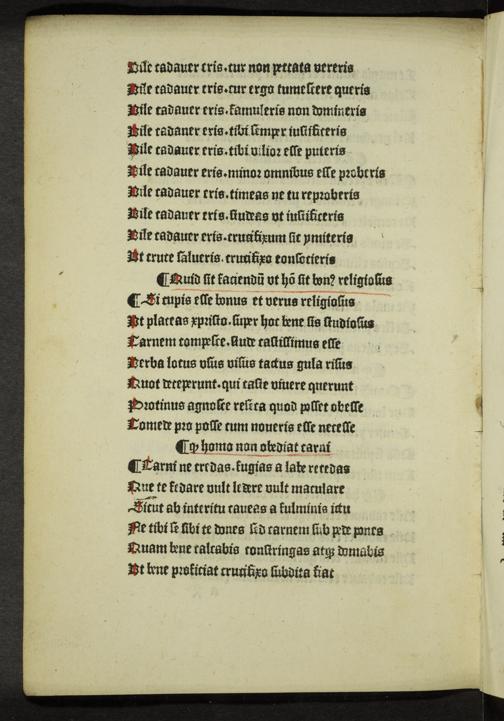 Vile cadauer eris. cur non peccata vereris
Vile cadauer eris. cur ergo tumescere queris
Vile cadauer eris. famuleris non domineris
Vile cadauer eris. tibi semper iustificeris
Vile cadauer eris. tibi vilior esse puteris
Vile cadauer eris. minor omnibus esse proberis
Vile cadauer eris. timeas ne tu reproberis
Vile cadauer eris. studeas vt iustificeris
Vile cadauer eris. crucifixum sic ymiteris
Vt cruce salueris. crucifixo consocieris
¶ Quid sit faciendū vt hō sit bonꝰ religiosus
¶ Si cupis esse bonus et verus religiosus
Vt placeas xpristo. super hoc bene sis studiosus
Carnem compesce. stude castissimus esse
Verba locus vsus visus tactus gula risus
Quot deceperunt. qui caste viuere querunt
Protinus agnosce reseca quod posset obesse
Comede pro posse cum noueris esse necesse
¶ ꝙ homo non obediat carni
¶ Carni ne credas. fugias a labe recedas
Que te fedare vult ledere vult maculare
Sicut ab interitu caueas a fulminis ictu
Ne tibi se sibi te dones sed carnem sub pede pones
Quam bene calcabis constringas atqꝫ domabis
Vt bene proficiat crucifixo subdita fiat